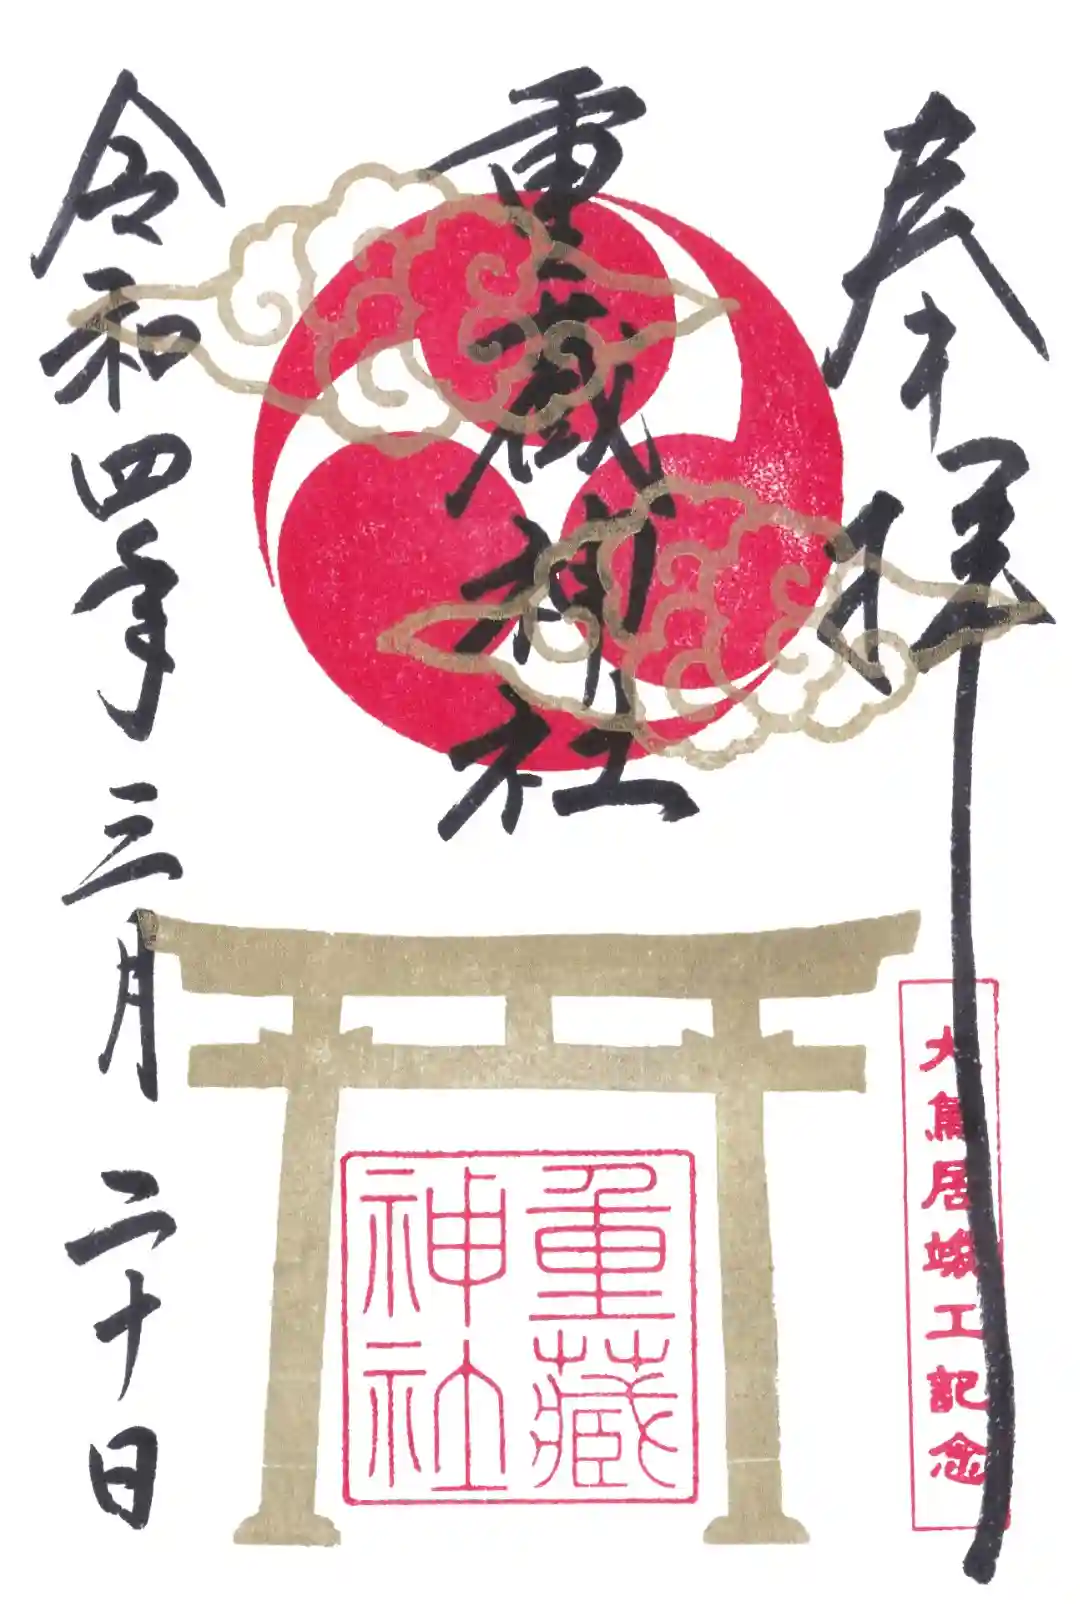 奉拝
大鳥居竣工記念
重蔵神社
重藏神社
令和四年三月二十日